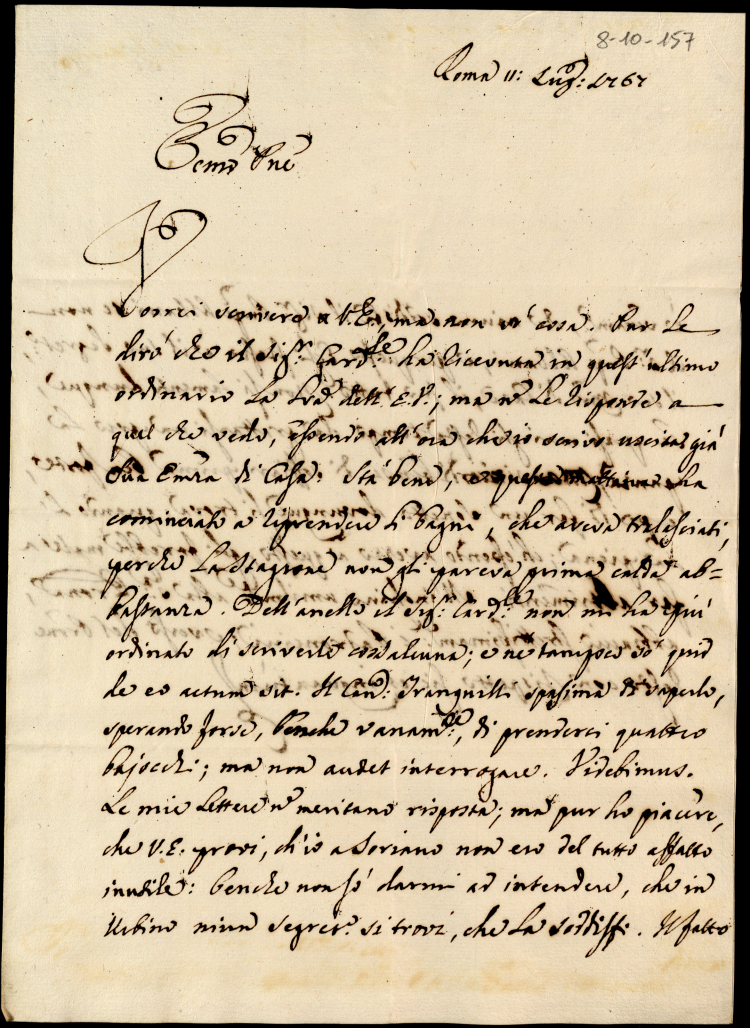 8-10-157
Roma 11: Lug.o: 1767
Ecmo Pne
Vorrei scrivere a V.E., ma non v'è cosa. Pur Le
dirò che il Sig.r Card.le ha ricevuta in quest'ultimo
ordinario La Lra dell'E.V.; ma n Le risponde a
quel che vedo, essendo all'ora che io scrivo uscita già
Sua Emza di Casa: Stà bene, ha
cominciato a riprendere li bagni, che aveva tralasciati,
perche La Stagione non gli pareva prima calda ab=
bastanza. Dell'anello il Sig.r Card.le non mi ha più
ordinato di scriverle cosa alcuna; e nè tampoco sò quid
de eo actum sit. Il Can.o: Tranquilli spasima di saperlo,
sperando forse, benche vanam.te, di prenderci quattro
bajocchi; ma non audet interrogare. Videbimus.
Le mie Lettere n meritano risposta; ma pur ho piacere,
che V.E. provi, ch'io a Soriano non ero del tutto affatto
inutile: benche non sò darmi ad intendere, che in
Urbino niun segret.o si trovi, che La soddisfi. Il fatto